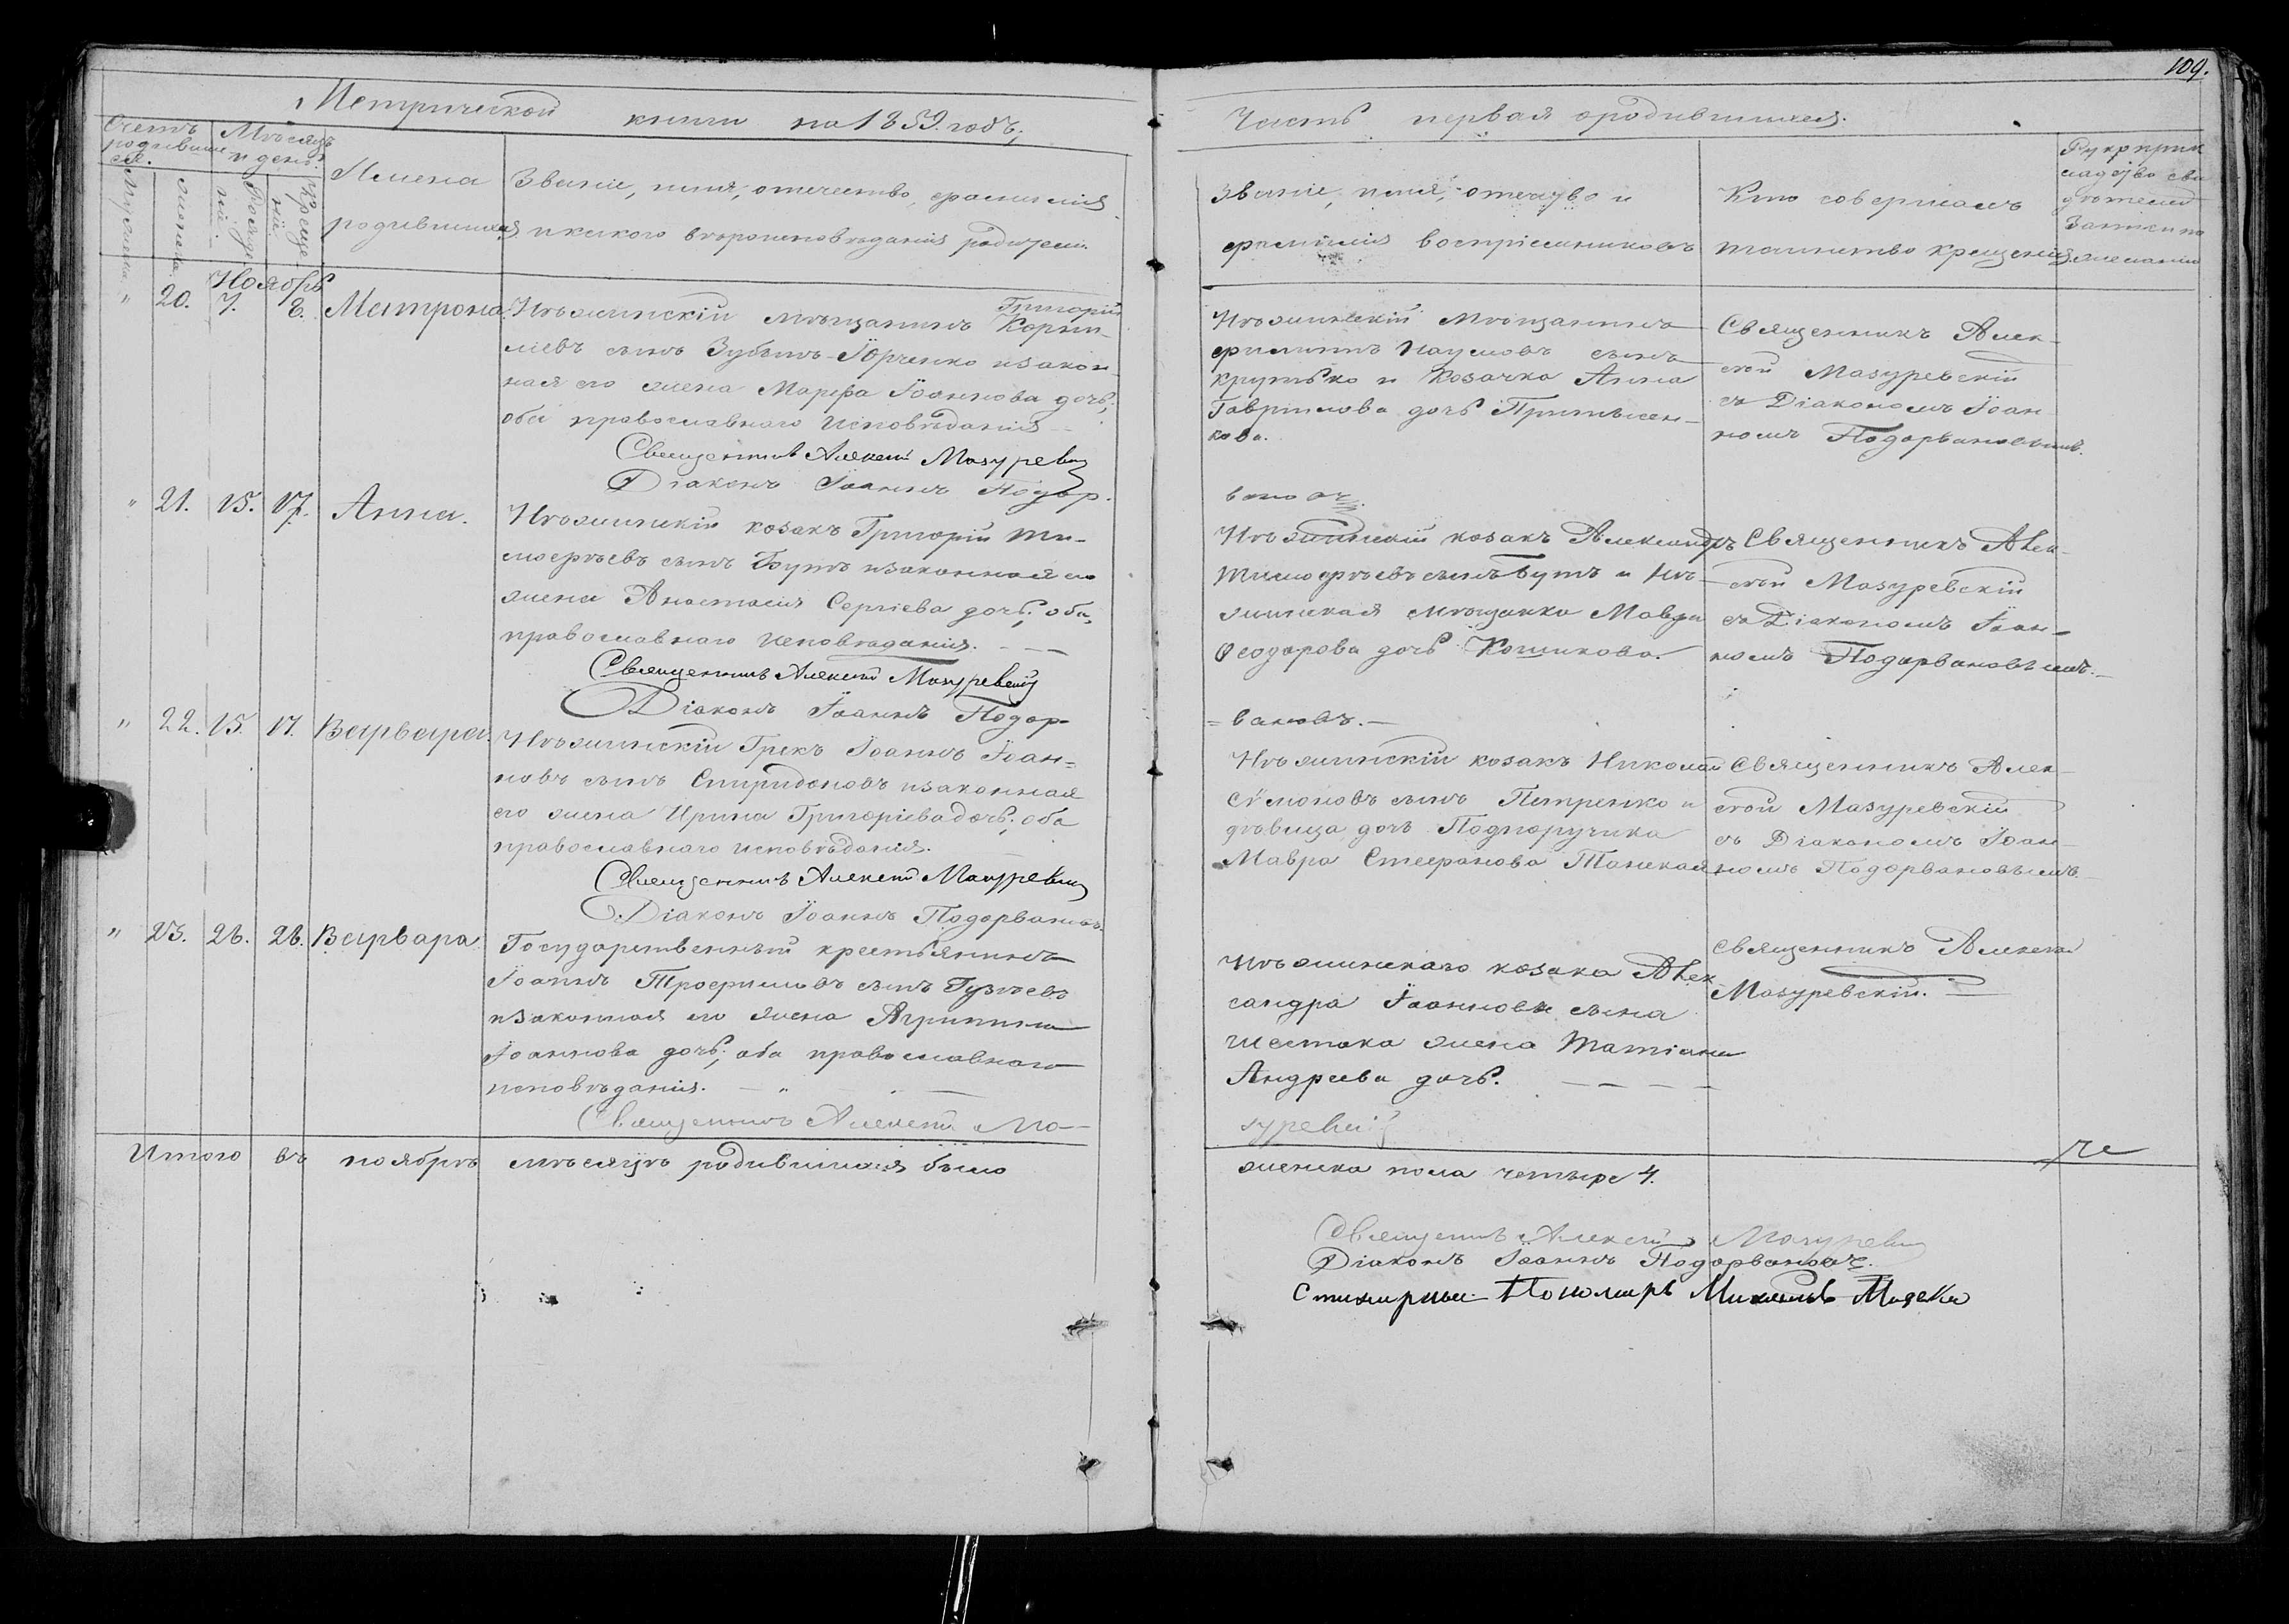 109.
Метрической книги на 1859 годъ,
Часть первая о родившихся.
Счетъ родившихся.
Мѣсяцъ и день.
Мужеска.
Женска.
Рожденія.
Крещенія.
Имена
родившихся
Званіе, имя, отечество, фамилія
и какого вѣроисповѣданія родители.
Званіе, имя, отечество и
фамилія воспріемниковъ
Кто совершалъ
таинство крещенія
Рукопри
кладство сви
дѣтелей
записи по
желанію
Ноябрь
" 20. 7. 8. Матрона.
Нѣжинскій мѣщанинъ Григорій Корни-
ліевъ сынъ Зубъ-Юрченко и закон-
ная его жена Марфа Іоаннова дочь,
оба православнаго исповѣданія
Священникъ Алексій Мазуревскій
Діаконъ Іоаннъ Подор-
Нѣжинскій мѣщанинъ
Филиппъ Наумовъ сынъ
Крутько и Козачка Анна
Гаврилова дочь
кова.
вановъ.
Священникъ Алек-
сѣй Мазуревскій
съ Діакономъ Іоан-
номъ Подорвановымъ.
" 21. 15. 17. Анна.
Нѣжинскій козакъ Григорій Ти-
мофѣевъ сынъ Бутъ и законная его
жена Анастасія Сергіева дочь; оба
православнаго исповѣданія.
Священникъ Алексій Мазуревскій
Діаконъ Іоаннъ Подор-
Нѣжинскій козакъ Александръ
Тимофѣевъ сынъ Бутъ и Нѣ-
жинская мѣщанка Мавра
Ѳеодорова дочь Кошикова.
вановъ.
Священникъ Алек-
сѣй Мазуревскій
съ Діакономъ Іоан-
номъ Подорвановымъ.
" 22. 15. 17. Варвара.
Нѣжинскій Грекъ Іоаннъ Іоан-
новъ сынъ Спиридоновъ и законная
его жена Ирина Григоріева дочь; оба
православнаго исповѣданія.
Священникъ Алексій Мазуревскій
Діаконъ Іоаннъ Подорвановъ
Нѣжинскій козакъ Николай
Симоновъ сынъ Петренко и
дѣвица дочь Подпоручика
Мавра Стефанова Танская
Священникъ Алек-
сѣй Мазуревскій
съ Діакономъ Іоан-
номъ Подорвановымъ.
" 23. 26. 28. Варвара
Государственный крестьянинъ
Іоаннъ Трофимовъ сынъ Гузѣевъ
и законная его жена Агрипина
Іоаннова дочь; оба православнаго
исповѣданія.
Священникъ Алексій Ма-
Нѣжинскаго козака Алек-
сандра Іоаннова сына
Шестака жена Татіана
Андреева дочь.
зуревскій
Священникъ Алексѣй
Мазуревскій.
Итого въ ноябрѣ мѣсяцѣ родившихся было
женска пола четыре 4.
Священникъ Алексій Мазуревскій
Діаконъ Іоаннъ Подорвановъ.
Пономарь